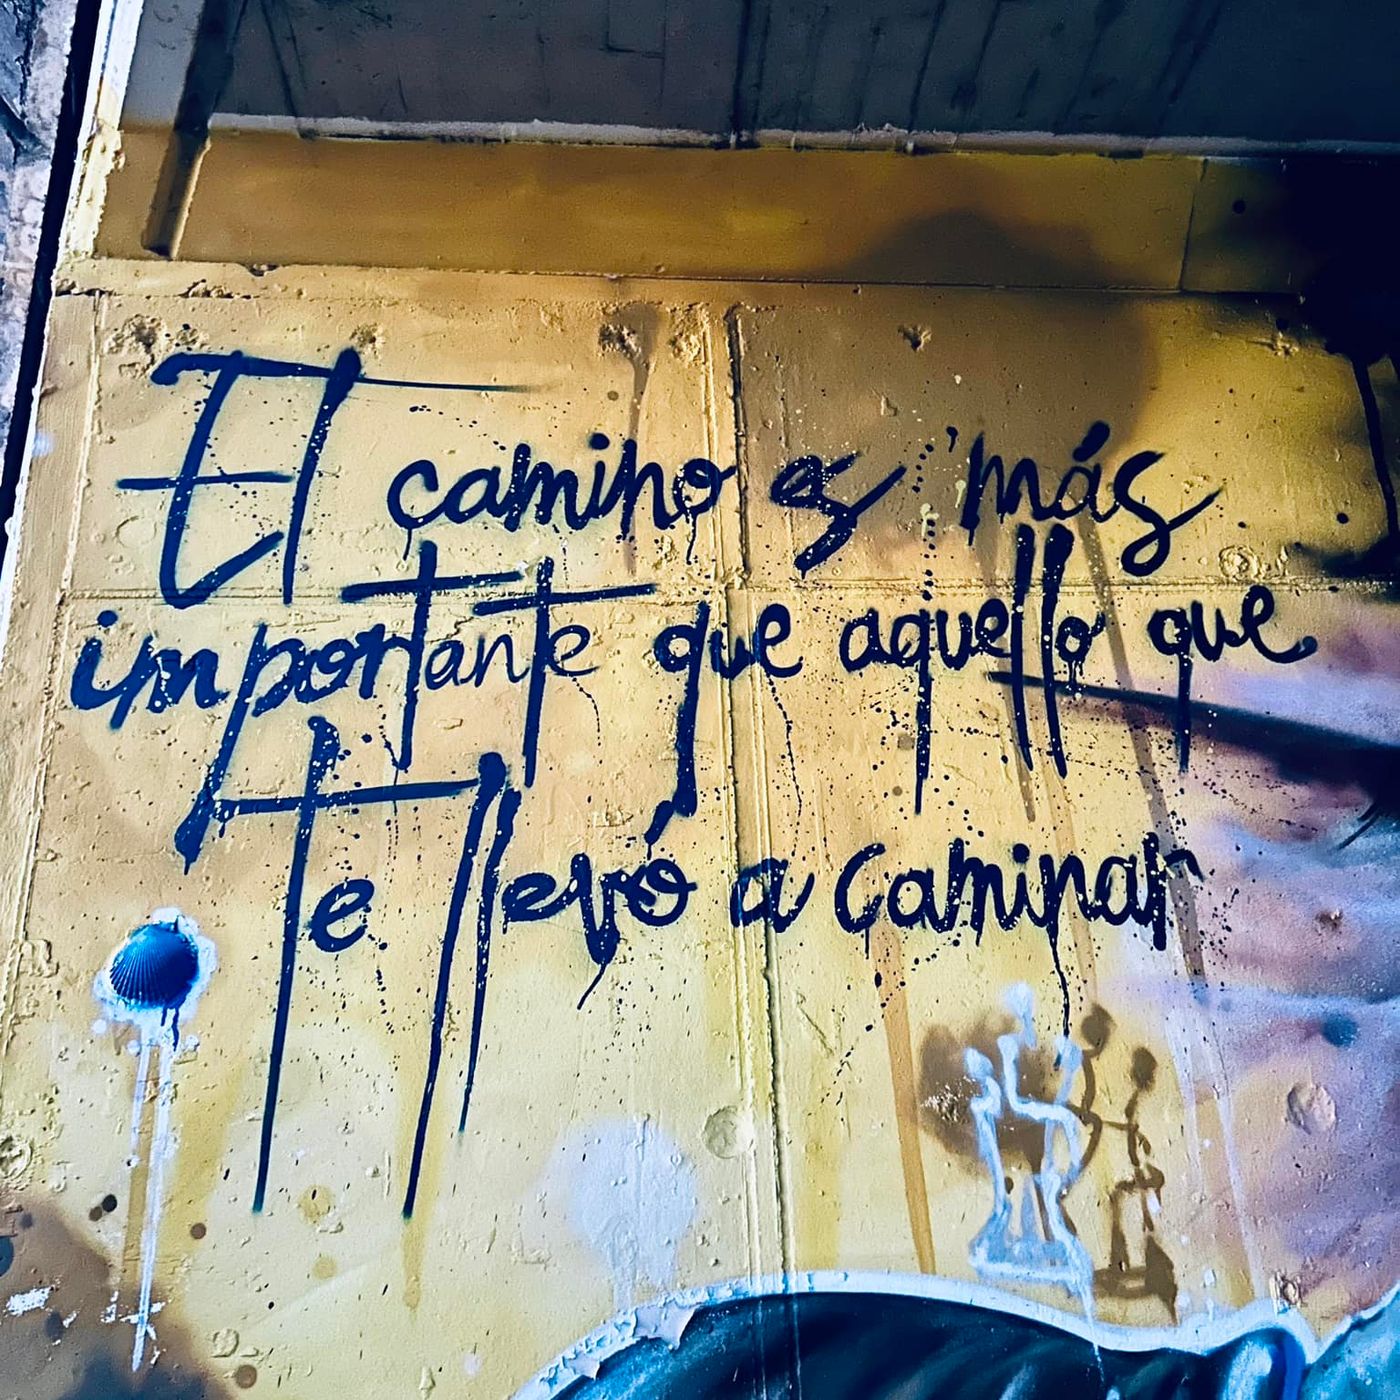 El camino es más
importante que aquello que
te llevó a caminar